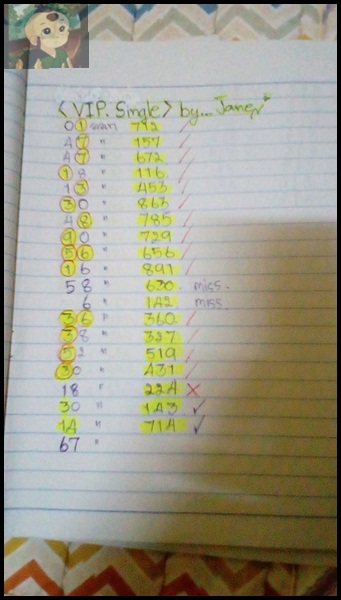 < VIP. Single > by... Janey
01 ออก 792 /
47 " 157 /
47 " 672 /
18 " 116 /
13 " 453 /
30 " 863 /
48 " 785 /
90 " 729 /
56 " 656 /
16 " 891 /
58 " 630 miss.
6 " 142 miss.
36 " 360 /
38 " 327 /
52 " 519 /
30 " 431 /
18 " 224 ×
30 " 143 ✓
14 " 714 ✓
67 "